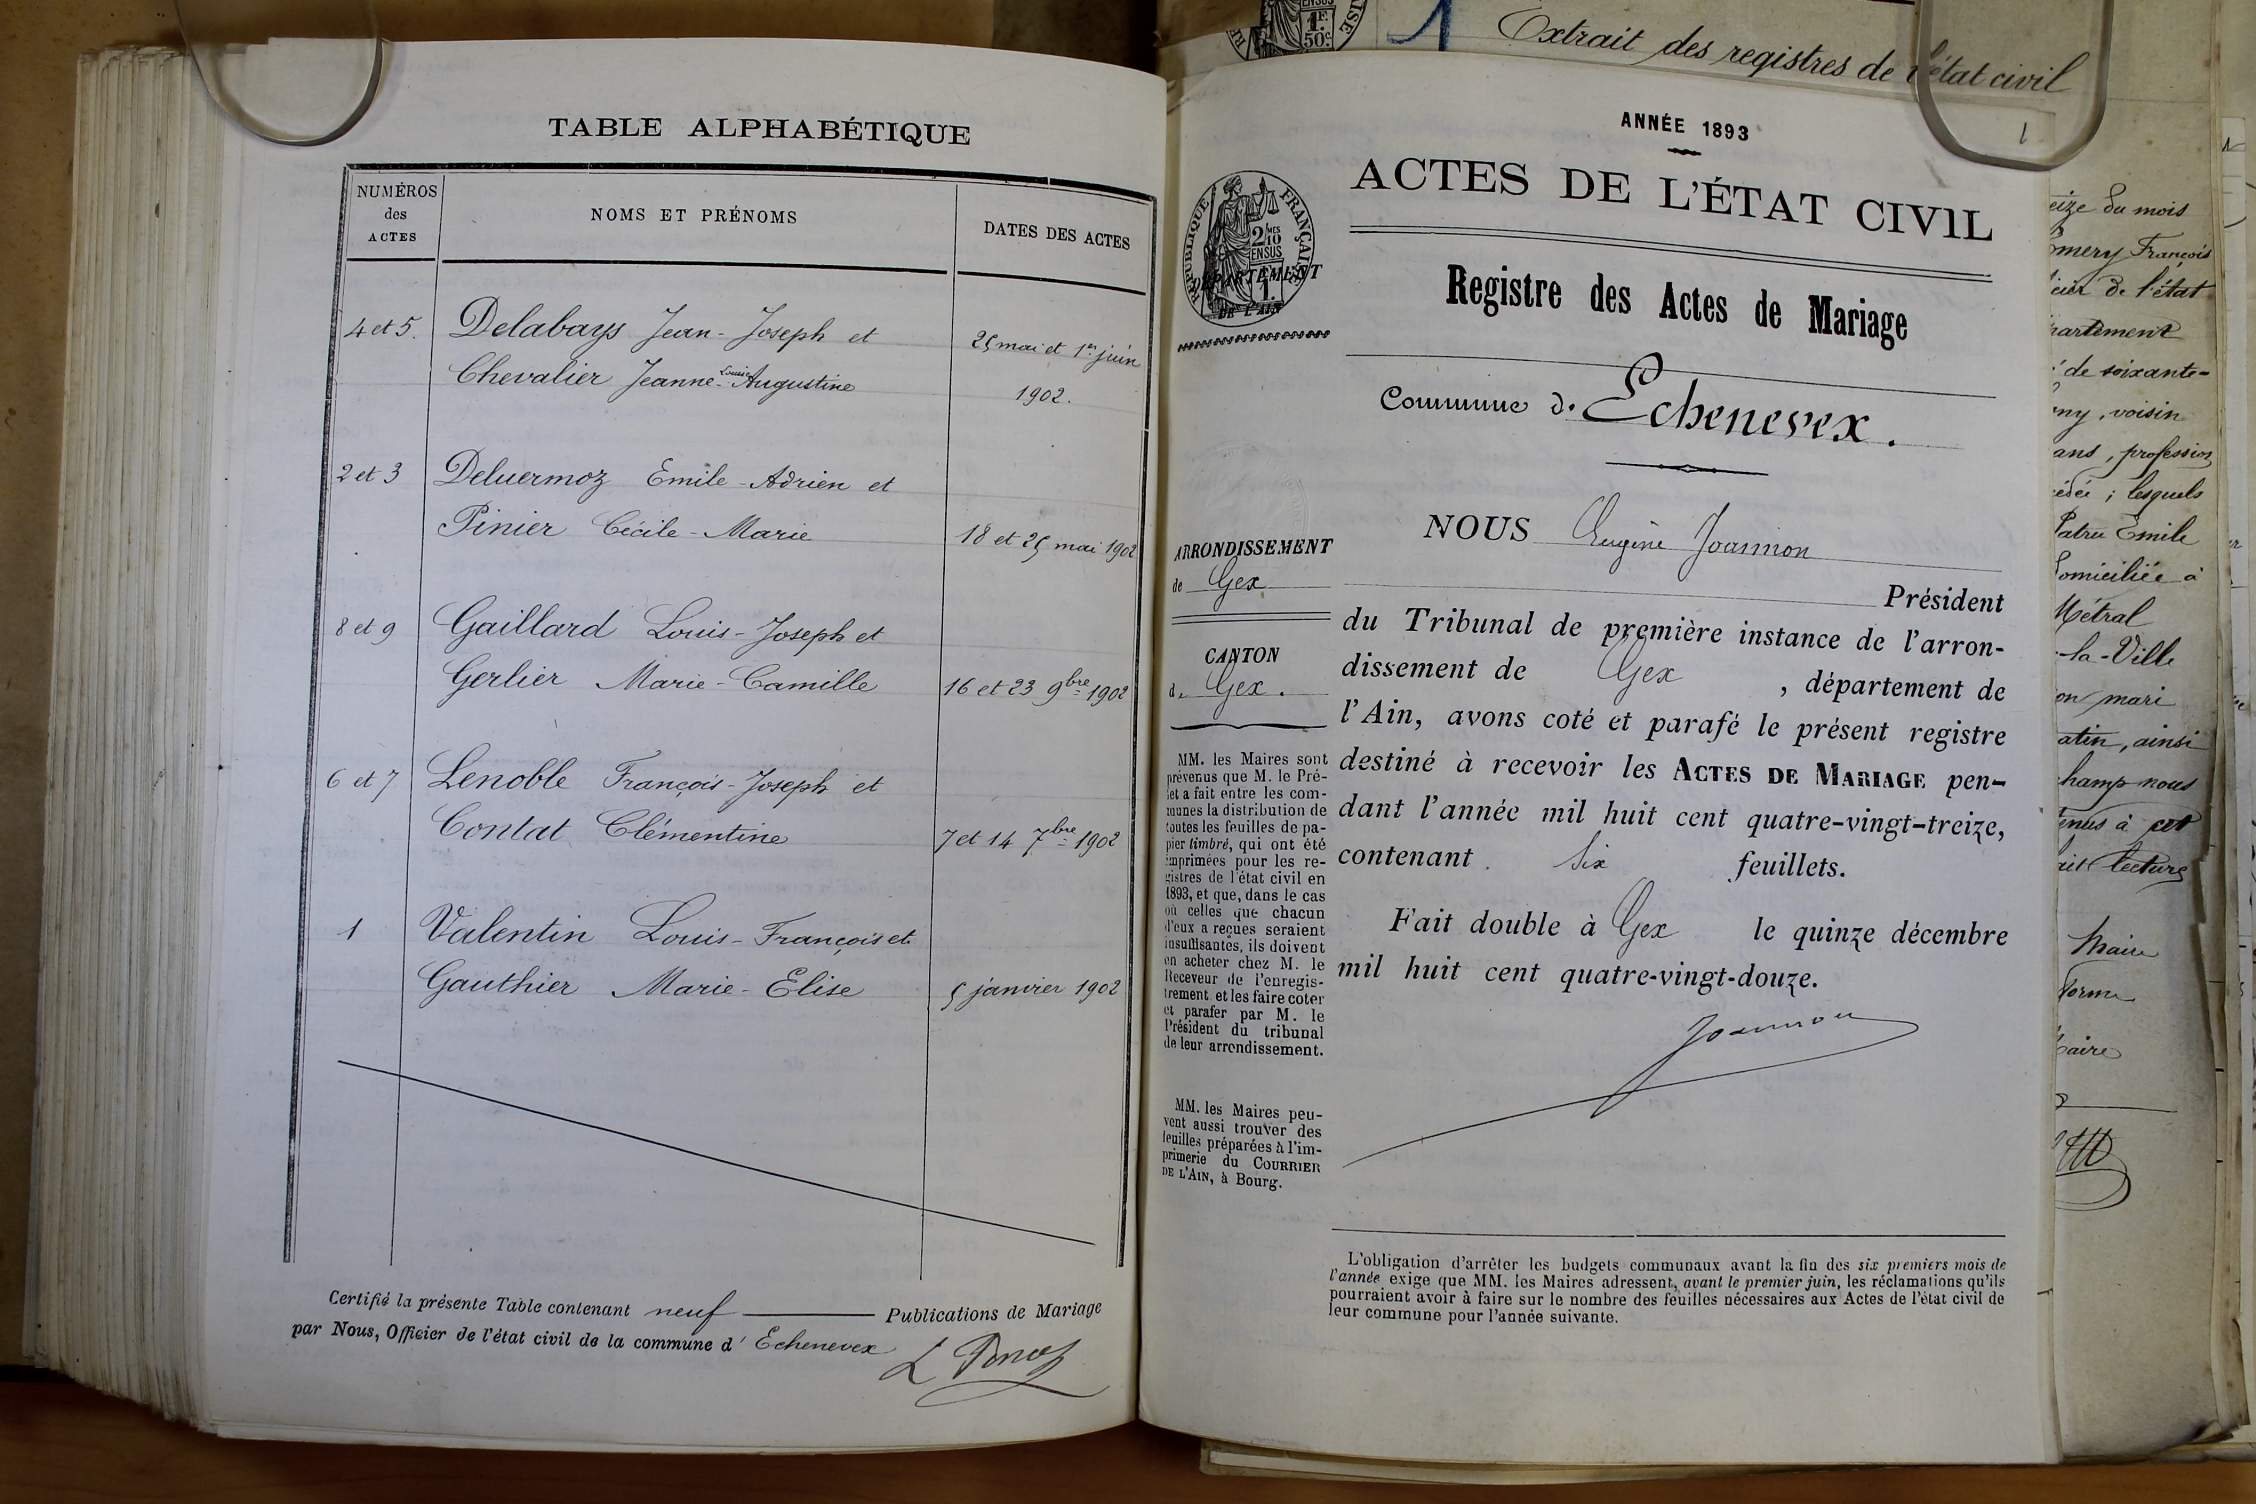 TABLE ALPHABÉTIQUE
NUMÉROS
des
ACTES
NOMS ET PRÉNOMS
DATES DES ACTES
4 et 5. Delabays Jean-Joseph et
Chevalier Jeanne-Louise-Augustine
25 mai et 1er juin
1902.
2 et 3 Deluermoz Emile-Adrien et
Pinier Cécile-Marie 18 et 25 mai 1902
8 et 9 Gaillard Louis-Joseph et
Gerlier Marie-Camille 16 et 23 9bre 1902
6 et 7 Lenoble François-Joseph et
Contat Clémentine 7 et 14 7bre 1902
1 Valentin Louis-François et
Gauthier Marie-Elise 5 janvier 1902
Certifié la présente Table contenant neuf Publications de Mariage
par Nous, Officier de l'état civil de la commune d' Echenevex
ANNÉE 1893
1
ACTES DE L'ÉTAT CIVIL
RÉPUBLIQUE FRANÇAISE
2 MES
10
EN SUS
DÉPARTEMENT
1.
DE L'AIN
Registre des Actes de Mariage
Commune d. Echenevex.
NOUS Eugène Joannon
Président
du Tribunal de première instance de l'arron-
dissement de Gex, département de
l'Ain, avons coté et parafé le présent registre
destiné à recevoir les ACTES DE MARIAGE pen-
dant l'année mil huit cent quatre-vingt-treize,
contenant six feuillets.
Fait double à Gex le quinze décembre
mil huit cent quatre-vingt-douze.
Joannon
ARRONDISSEMENT
de Gex
CANTON
d. Gex.
MM. les Maires sont
prévenus que M. le Pré-
fet a fait entre les com-
munes la distribution de
toutes les feuilles de pa-
pier timbré, qui ont été
imprimées pour les re-
gistres de l'état civil en
1893, et que, dans le cas
où celles que chacun
d'eux a reçues seraient
insuffisantes, ils doivent
en acheter chez M. le
Receveur de l'enregis-
trement et les faire coter
et parafer par M. le
Président du tribunal
de leur arrondissement.
MM. les Maires peu-
vent aussi trouver des
feuilles préparées à l'im-
primerie du COURRIER
DE L'AIN, à Bourg.
L'obligation d'arrêter les budgets communaux avant la fin des six premiers mois de
l'année exige que MM. les Maires adressent, avant le premier juin, les réclamations qu'ils
pourraient avoir à faire sur le nombre des feuilles nécessaires aux Actes de l'état civil de
leur commune pour l'année suivante.
EN SUS
1F.
50c.
1 Extrait des registres de l'état civil
eize du mois
mery François
cier de l'état
partement
de soixante-
ny, voisin
ans, profession
édée ; lesquels
Patru Emile
Domiciliée à
Métral
-la-Ville
on mari
atin, ainsi
champ nous
tenus à cet
ait lecture
Maire
forme
Maire